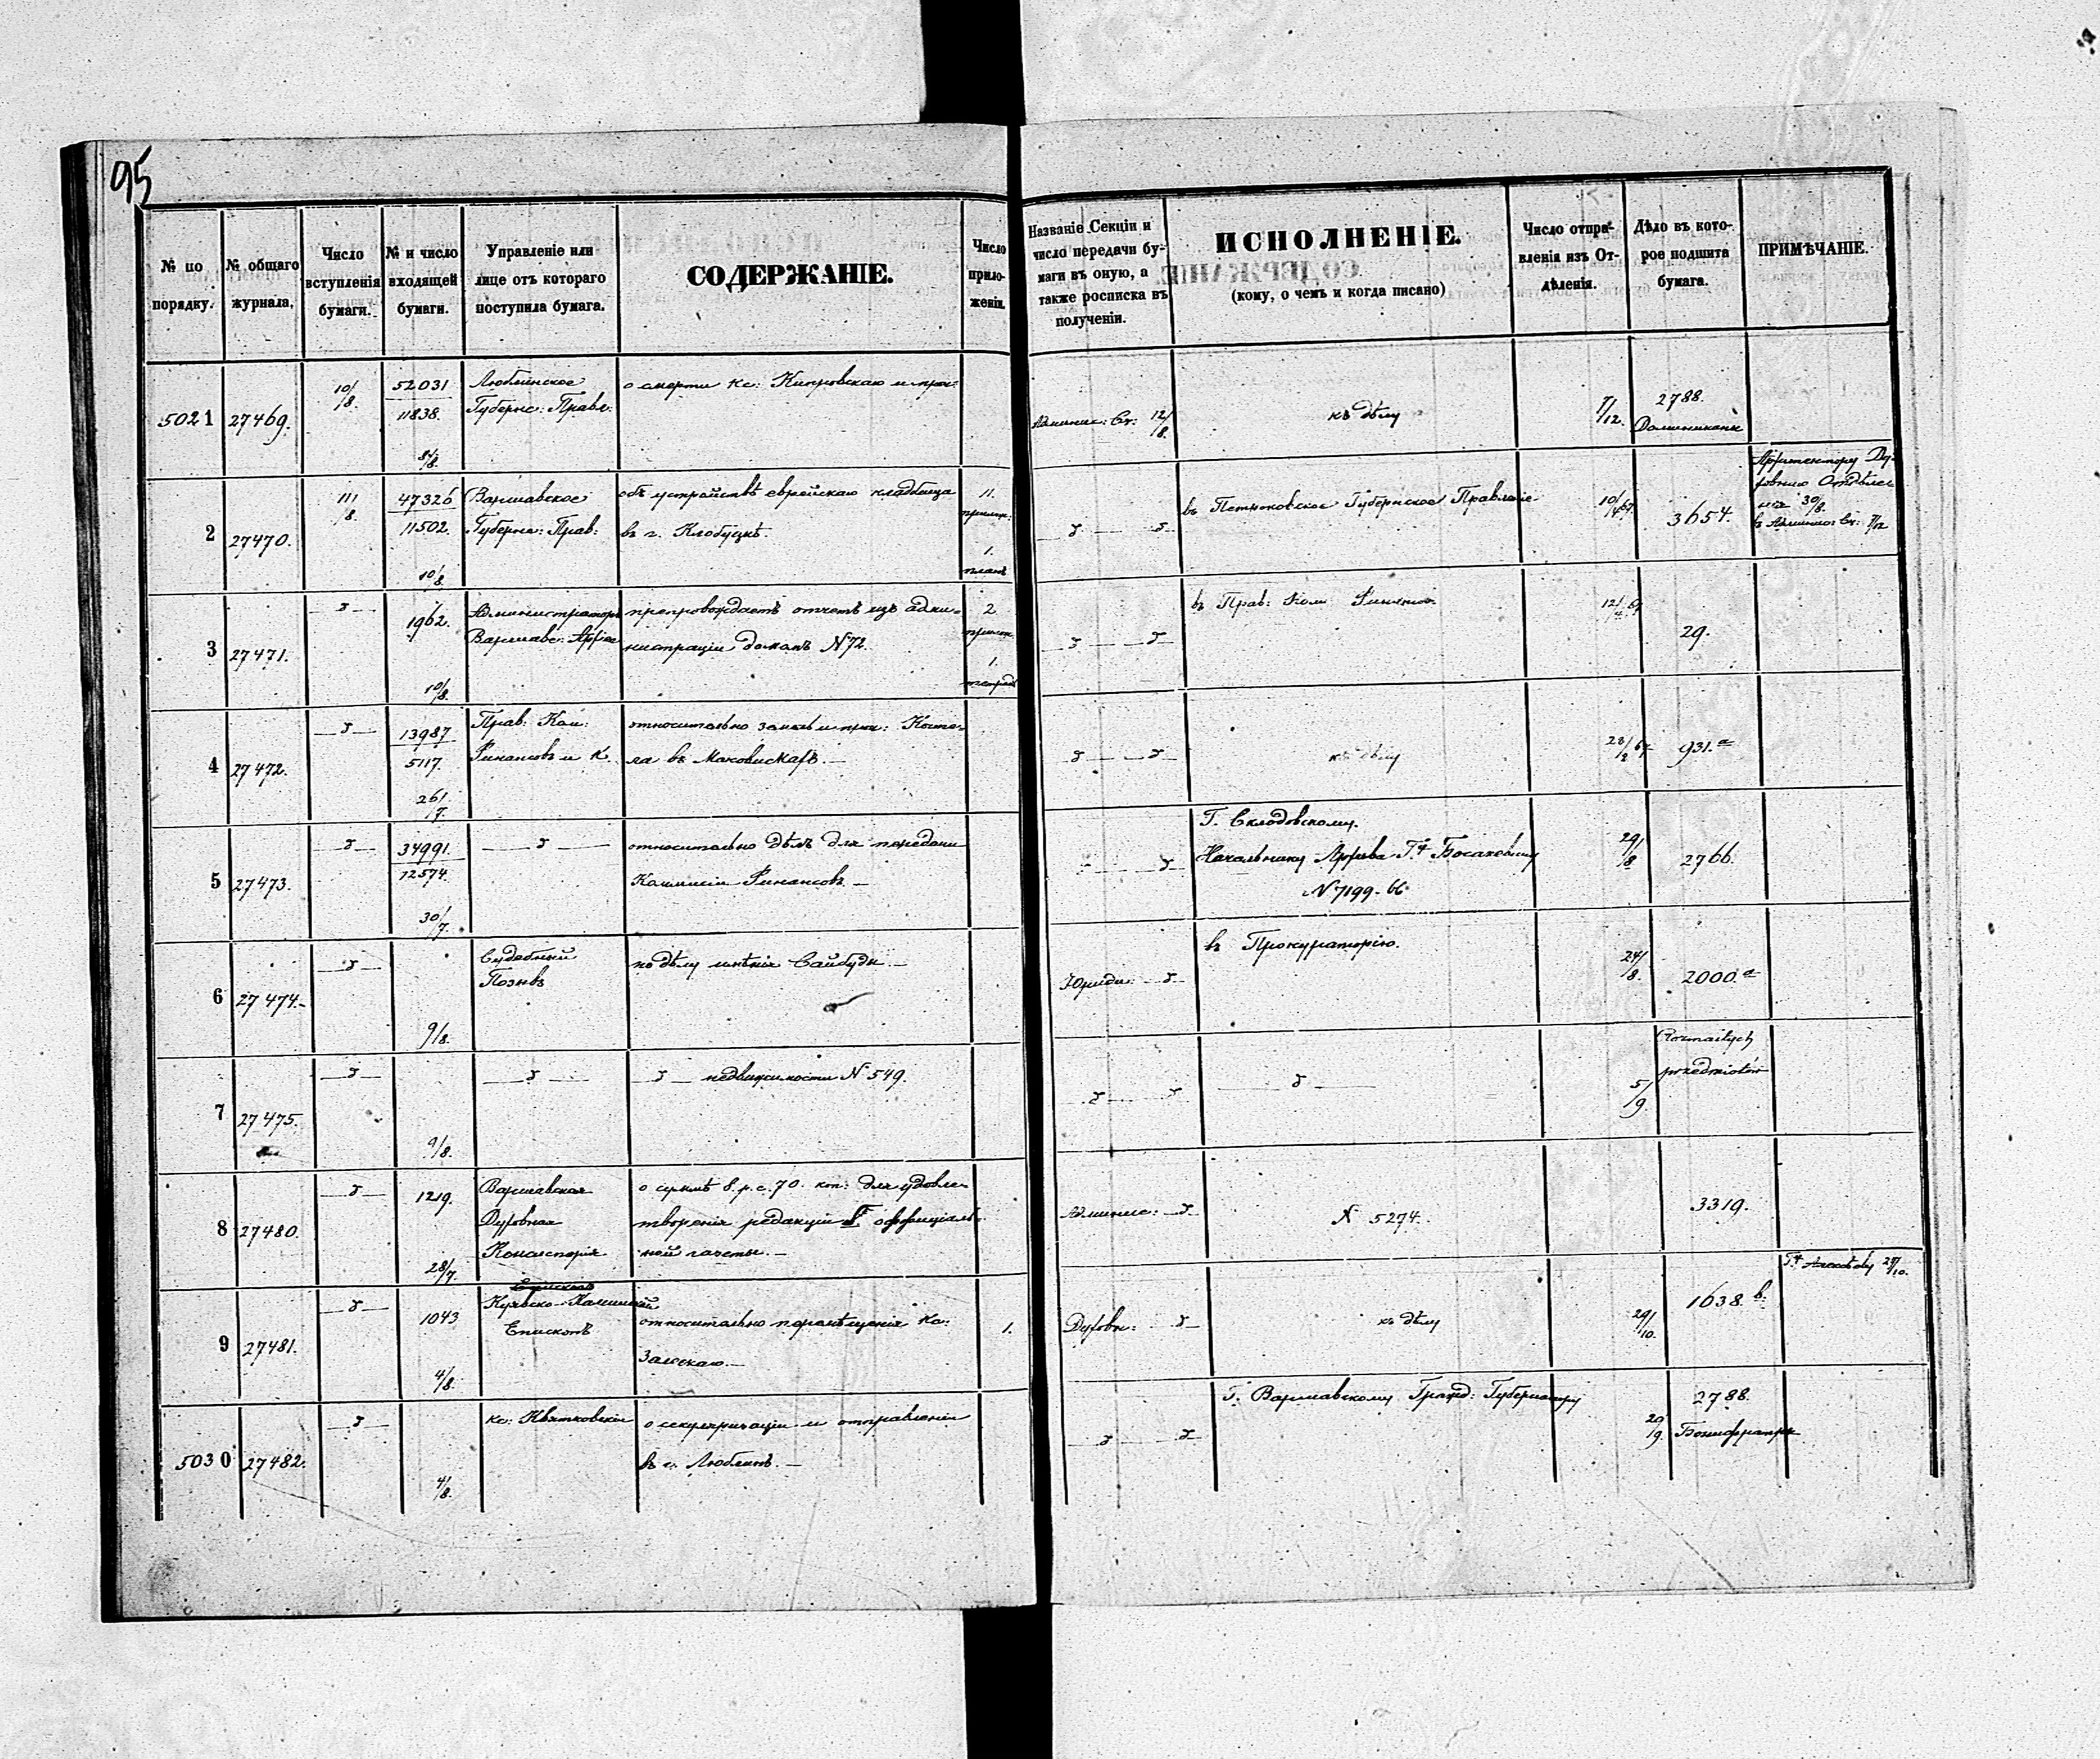 95
№ по порядку.
№ общаго журнала,
Число вступленія бумаги.
№ и число входящей бумаги.
Управленіе или лице отъ котораго поступила бумага.
СОДЕРЖАНІЕ.
Число прило-женій.
Названіе Секціи и число передачи бу-маги въ оную, а также росписка въ полученіи.
ИСПОЛНЕНІЕ.
(кому, о чемъ и когда писано)
Число отпра-вленія изъ От-дѣленія.
Дѣло въ кото-рое подшита бумага.
ПРИМѢЧАНІЕ.
5021 27469. 10/8. 52031
11838.
8/8.
Люблинское
Губернс: Правл:
о смерти Кс:
Админис: Ск: 12/8.
къ дѣлу
7/12.
2788.
Доминиканы
2 27470. 11/8. 47326
11502.
10/8.
Варшавское
Губернс: Прав:
объ устройствѣ еврейскаго кладбища
въ г. Клобуцкѣ.
11.
1.
планъ
въ Петроковское Губернское Правленіе
3654.
3 27471. 1962.
10/8.
Администраторъ
Варшавс: Архіе
препровождаетъ отчетъ изъ адми-
нистраціи домомъ N 72.
2
1.
тетрадь
въ Прав: Ком: Финансов
29.
4 27472. 13987
5117.
26/7.
Прав: Ком:
Финансовъ и К.
относительно
ла въ
къ дѣлу
931.а
5 27473. 34991.
12574.
30/7.
относительно дѣлъ для передачи
Коммисіи Финансовъ. —
Г. Склодовскому.
Начальнику Архива
N 7199-66
29/8
2766.
6 27474.
9/8.
Судебный
Позывъ
по дѣлу имѣнія Сайбуды. —
Юриди:
въ Прокураторію.
24/8.
2000.а
7 27475.
9/8.
недвижимости N 549.
5/9.
Rozmaitych
przedmiotów
8 27480. 1219.
28/7.
Варшавская
Духовная
Консисторія
о суммѣ 8. р. с. 70. коп: для удовле-
творенія редакціи оффиціаль-
ной газеты. —
Админис:
N 5274.
3319.
9 27481. 1043
4/8.
Куявско-Калишскій
Епископъ
относительно перемѣщенія Кс:
Залескаго. —
1.
Духовн:
къ дѣлу
29/10.
1638. в.
5030 27482.
4/8.
кс: Квятковскій
о секуляризаціи и отправленіи
въ г. Люблинъ. —
Г. Варшавскому Гражд: Губернатору
20/9.
2788.
Бонифратры